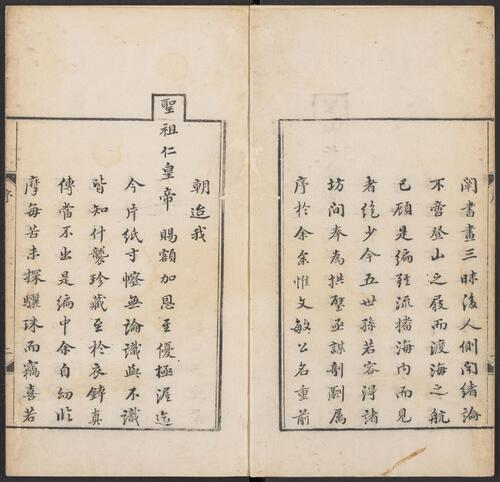 闡書畫三昧後人側聞緒論
不啻登山之屐而渡海之航
已顧是編雖流播海内而見
者絶少今五世孫若容得諸
坊間奉為拱璧亟謀剞劂属
序於余余惟文敏公名重前
朝迨我
聖祖仁皇帝賜額加恩至優極渥迄
今片紙寸幨無論識與不識
皆知什襲珍藏至於衣鉢真
傳當不出是編中余自幼臨
摩每苦未探驪珠而竊喜若
序